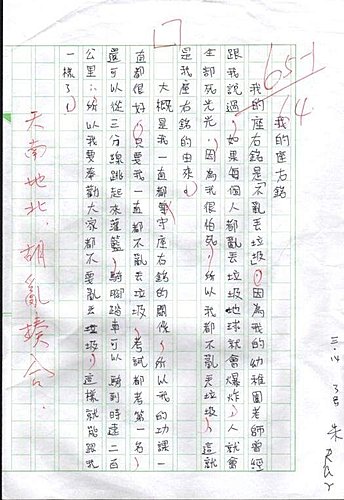 我的座右銘
我的座右銘是「不亂丟垃圾」，因為我的幼稚園老師曾經
跟我說過，如果每個人都亂丟垃圾地球就會爆炸，人就會
全部死光光，因為我很怕死，所以我都不亂丟垃圾，這就
是我座右銘的由來。
大概是我一直都遵守座右銘的關係，所以我的功課一
直都很好，只要我一直都不亂丟垃圾，考試都考第一名，
還可以從三分線跳起來灌籃，騎腳踏車可以騎到時速二百
公里，所以我要奉勸大家都不要亂丟垃圾，這樣就能跟我
一樣了。
天南地北，胡亂湊合。
65-1
14
三.14 3号 朱